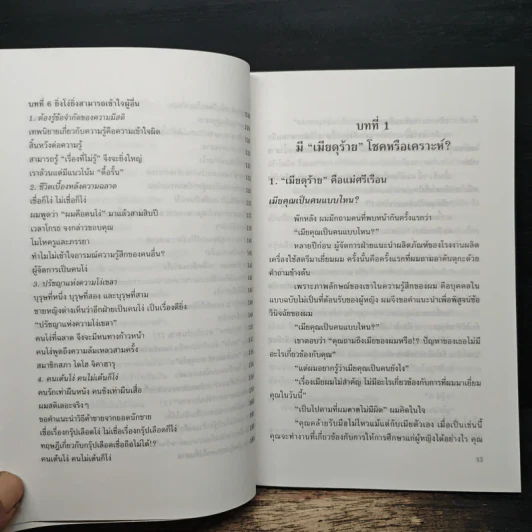 บทที่ 6 ยิ่งโง่ยิ่งสามารถเข้าใจผู้อื่น
1. ต้องรู้ข้อจำกัดของความมีสติ
เทพนิยายเกี่ยวกับความรู้คือความเข้าใจผิด
สิ้นหวังต่อความรู้
สามารถรู้ "เรื่องที่ไม่รู้" จึงจะยิ่งใหญ่
เราล้วนแต่มีแนวโน้ม "ดื้อรั้น"
2. ชีวิตเบื้องหลังความฉลาด
เชื่อก็โง่ ไม่เชื่อก็โง่
ผมพูดว่า "ผมคือคนโง่" มาแล้วสามสิบปี
เวลาโกรธ จงกล่าวขอบคุณ
โมโหครูและภรรยา
ทำไมไม่เข้าใจอารมณ์ความรู้สึกของคนอื่น?
ผู้จัดการเป็นคนโง่
3. ปรัชญาแห่งความโง่เขลา
บุรุษที่หนึ่ง บุรุษที่สอง และบุรุษที่สาม
ชายหญิงต่างเห็นว่าอีกฝ่ายเป็นคนโง่ เป็นเรื่องดียิ่ง
"ปรัชญาแห่งความโง่เขลา"
คนโง่ที่ฉลาด จึงจะมีหนทางก้าวหน้า
คนโง่พูดถึงความล้มเหลวสามครั้ง
สมาชิกสภา ไดโฮ จิคาฮารุ
4. คนเต้นโง่ คนไม่เต้นก็โง่
คนรักเท่าผืนหนัง คนชังเท่าผืนเสื่อ
ผมสติเลอะจริงๆ
ขอคำแนะนำวิธีค้าขายจากยอดนักขาย
เชื่อเรื่องกรุ๊ปเลือดโง่ ไม่เชื่อเรื่องกรุ๊ปเลือดก็โง่
ทฤษฎีเกี่ยวกับกรุ๊ปเลือดเชื่อถือไม่ได้!?
คนเต้นโง่ คนไม่เต้นก็โง่
บทที่ 1
มี "เมียดุร้าย" โชคหรือเคราะห์?
1. "เมียดุร้าย" คือแม่ศรีเรือน
เมียคุณเป็นคนแบบไหน?
พักหลัง ผมมักถามคนที่พบหน้ากันครั้งแรกว่า
"เมียคุณเป็นคนแบบไหน?"
หลายปีก่อน ผู้จัดการฝ่ายแนะนำผลิตภัณฑ์ของโรงงานผลิต
เครื่องใช้สตรีมาเยี่ยมผม ครั้งนั้นคือครั้งแรกที่ผมถามอาคันตุกะด้วย
คำถามข้างต้น
เพราะภาพลักษณ์ของเขาในความรู้สึกของผม คือบุคคลใน
แบบฉบับไม่เป็นที่ต้อนรับของผู้หญิง ผมจึงขอคำแนะนำเพื่อพิสูจน์ข้อ
วินิจฉัยของผม
"เมียคุณเป็นคนแบบไหน?"
เขาตอบว่า "คุณถามถึงเมียของผมหรือ!? ปัญหาของเธอไม่มี
อะไรเกี่ยวข้องกับคุณ"
"แต่ผมอยากรู้ว่าเมียคุณเป็นคนยังไง"
"เรื่องเมียผมไม่สำคัญ ไม่มีอะไรเกี่ยวข้องกับการที่ผมมาเยี่ยม
คุณในวันนี้"
"เป็นไปตามที่ผมคาดไม่มีผิด" ผมคิดในใจ
"คุณคล้ายรับมือไม่ไหวแม้แต่กับเมียตัวเอง เมื่อเป็นเช่นนี้
คุณจะทำงานที่เกี่ยวข้องกับการให้การศึกษาแก่ผู้หญิงได้อย่างไร คุณ